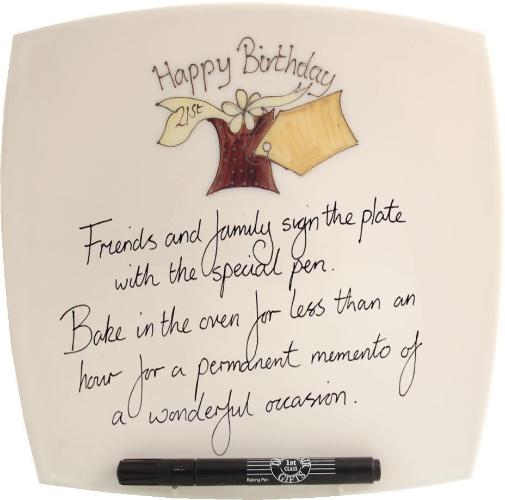 Happy Birthday
21st
Friends and family sign the plate
with the special pen.
Bake in the oven for less than an
hour for a permanent memento of
a wonderful occasion.
Baking Pen
1st
CLASS
GIFTS